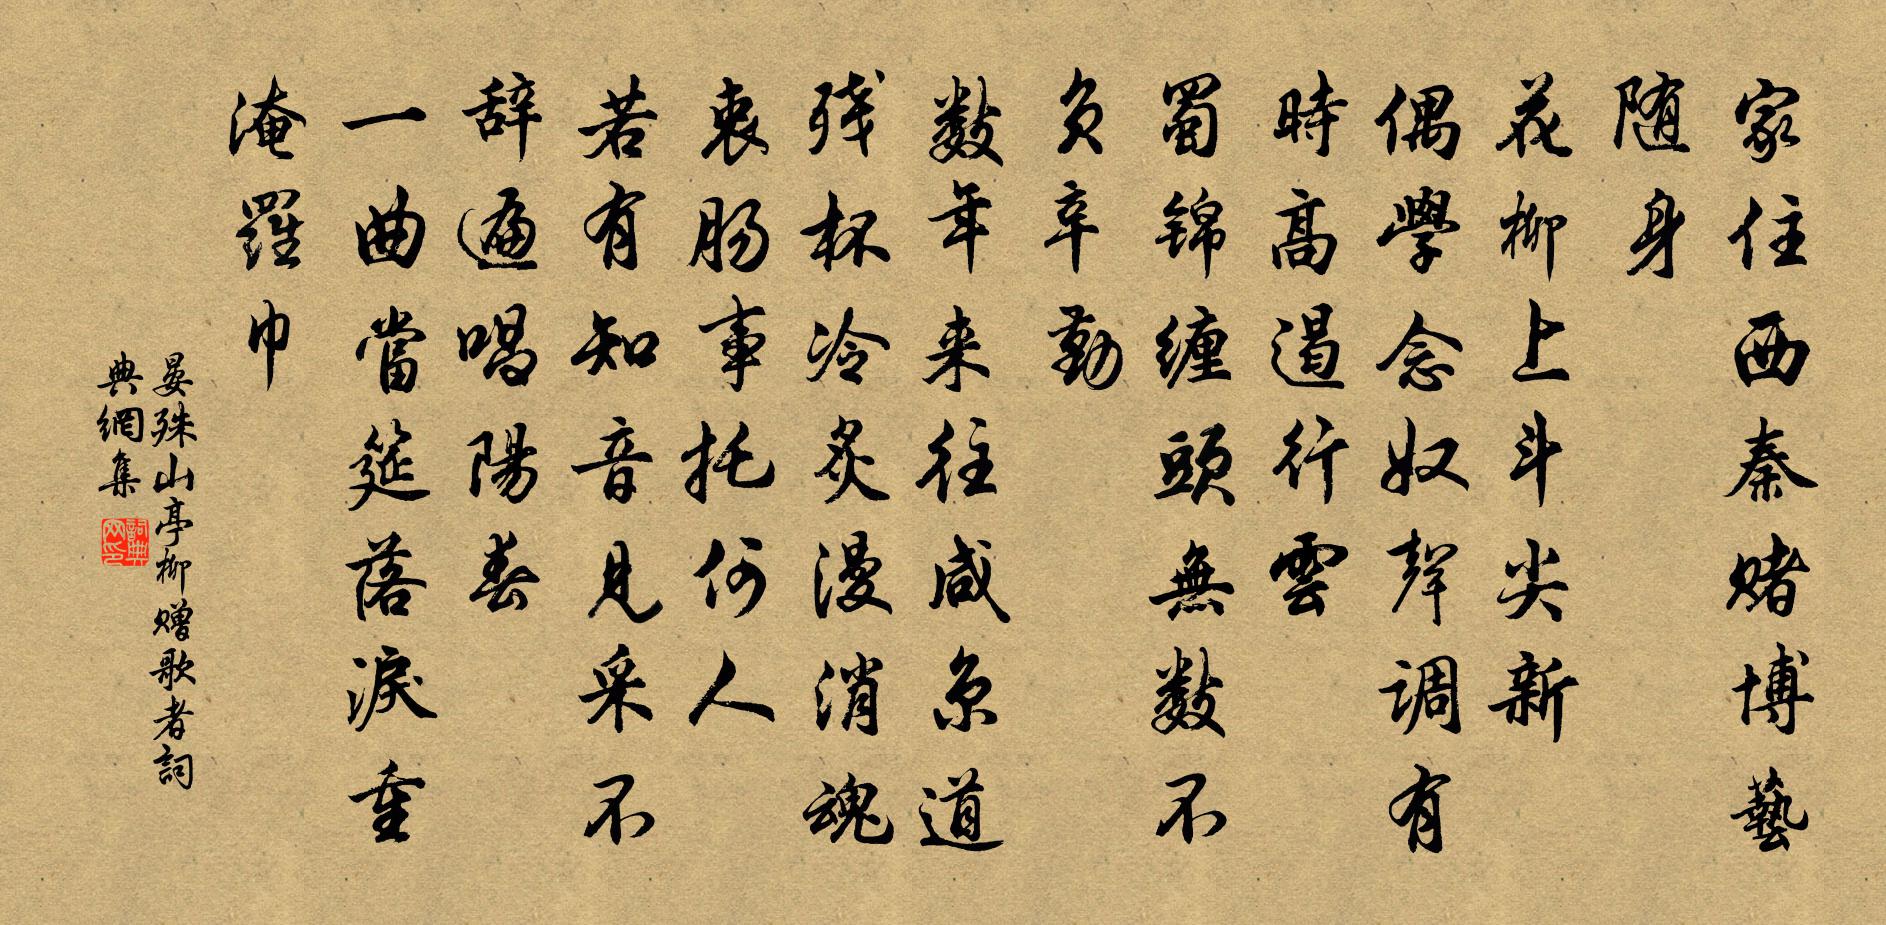 家住西秦赌博藝
随身
花柳上斗尖新
偶學念奴聲調有
時高遏行雲
蜀锦缠頭無数不
负辛勤
数年来往咸京道
残杯冷炙漫消魂
衷肠事托何人
若有知音見采不
辞遍唱陽春
一曲當筵落淚重
淹羅巾
晏殊山亭柳赠歌者詞
典網集
詞典
网印